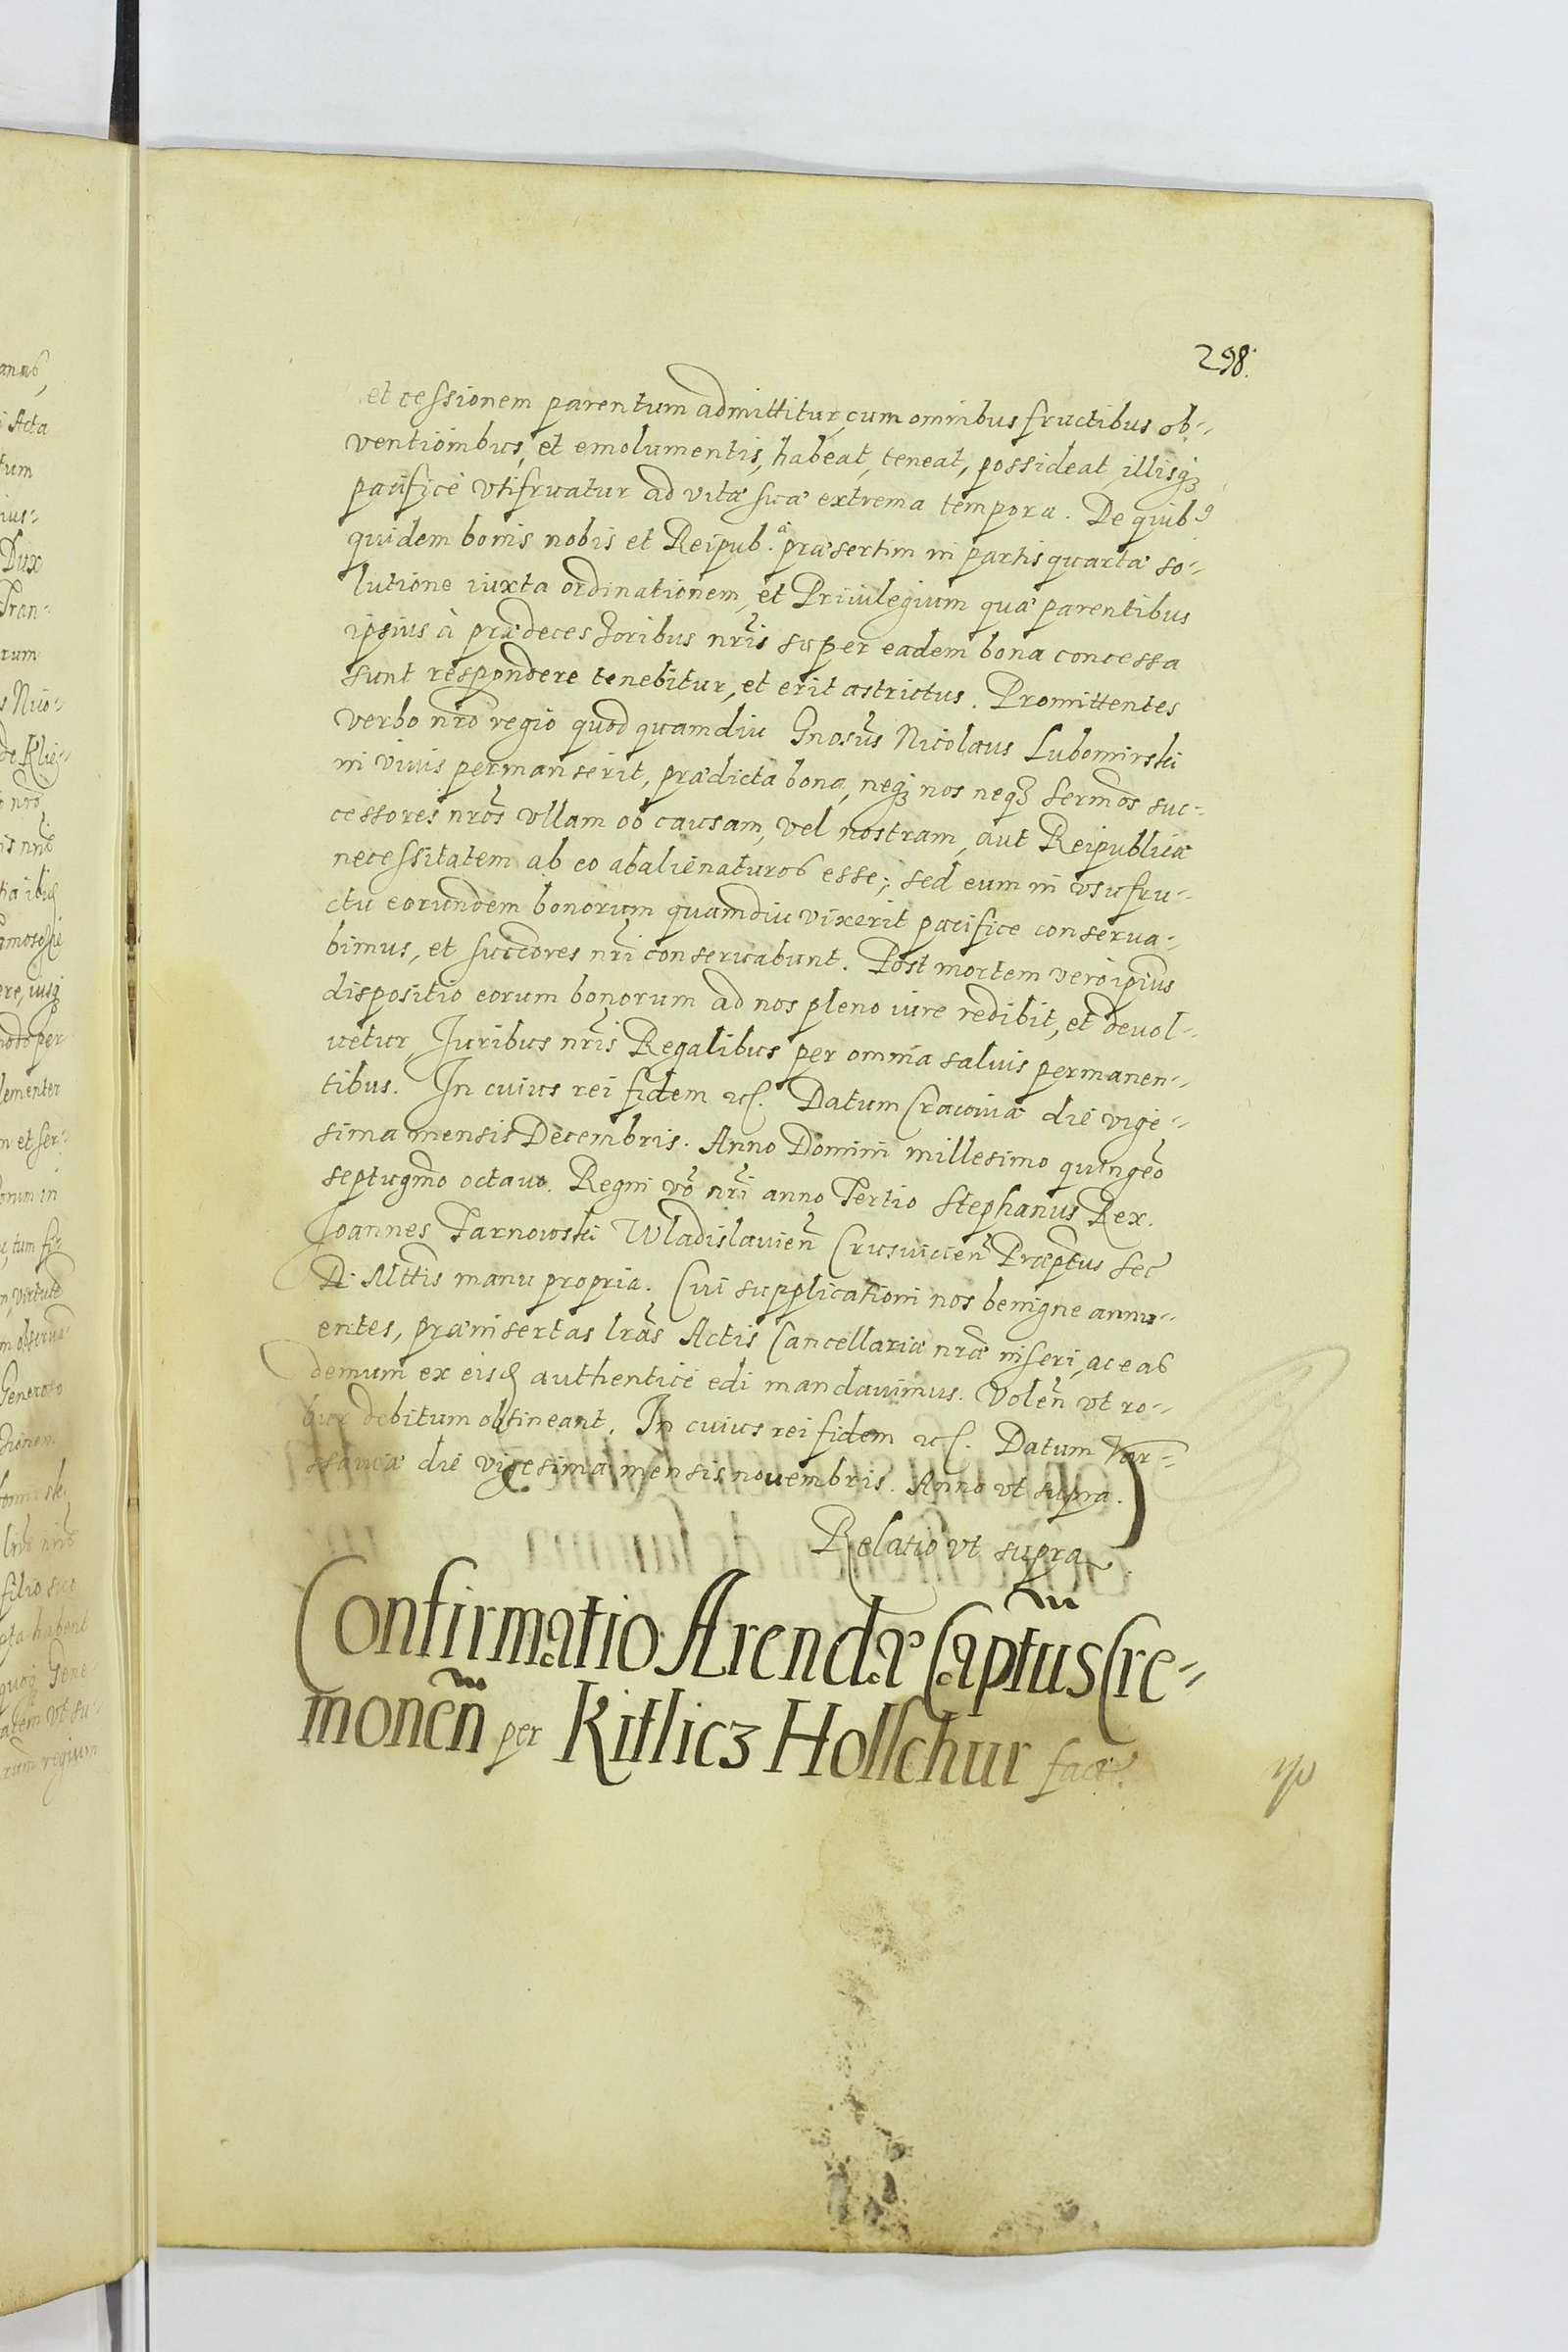 298.
et cessionem parentum admittitur, cum omnibus fructibus ob-
ventionibus, et emolumentis, habeat, teneat, possideat, illisqȝ
pacifice vtifruatur ad vitæ suæ extrema tempora. De quib9
quidem bonis nobis et Reipub.ᵃ præsertim in partis quartæ so-
lutione iuxta ordinationem, et Priuilegium quæ parentibus
ipsius à prædecessoribus nr̃is super eadem bona concessa
sunt respondere tenebitur, et erit astrictus. Promittentes
verbo nr̃o regio quod quamdiu Gnosus Nicolaus Lubomirski
in viuis permanserit, prædicta bona, neqȝ nos neqȝ sermos suc-
cessores nr̃os vllam ob causam, vel nostram, aut Reipublicæ
necessitatem ab eo abalienaturos esse; sed eum in vsufru-
ctu eorundem bonorum quamdiu vixerit pacifice conserua-
bimus, et succores nr̃i conseruabunt. Post mortem vero ipius
dispositio eorum bonorum ad nos pleno iure redibit, et deuol-
uetur Juribus nr̃is Regalibus per omnia saluis permanen-
tibus. In cuius rei fidem etc. Datum Cracouiæ die vige-
sima mensis Decembris. Anno Domini millesimo quingeo
septugmo octauo. Regni vo nr̃i anno Tertio Stephanus Rex.
Joannes Tarnowski Wladislauien Crusuicien Præptus Sec
R. Mttis manu propria. Cui supplicationi nos benigne annu-
entes, præinsertas lras Actis Cancellariæ nræ inseri, ac eas
demum ex eisd authentice edi mandauimus. Volen vt ro-
bur debitum obtineant. In cuius rei fidem etc. Datum Var-
ssauiæ die vigesima mensis nouembris. Anno vt supra.
Relatio vt supra
Confirmatio Arendæ Captus Cre-
monen per Kitlicz Hollchur factæ.